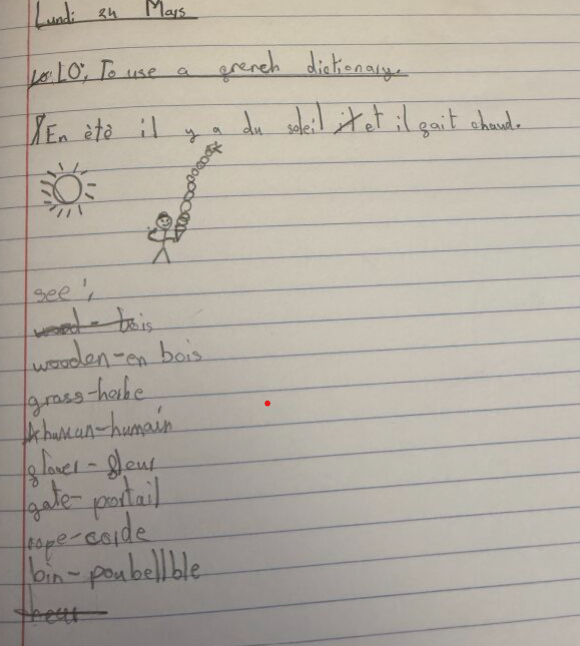 Lundi 24 Mars
LO: To use a french dictionary.
En été il y a du soleil et il fait chaud.
see:
wood - bois
wooden - en bois
grass - herbe
human - humain
flower - fleur
gate - portail
rope - corde
bin - poubellble